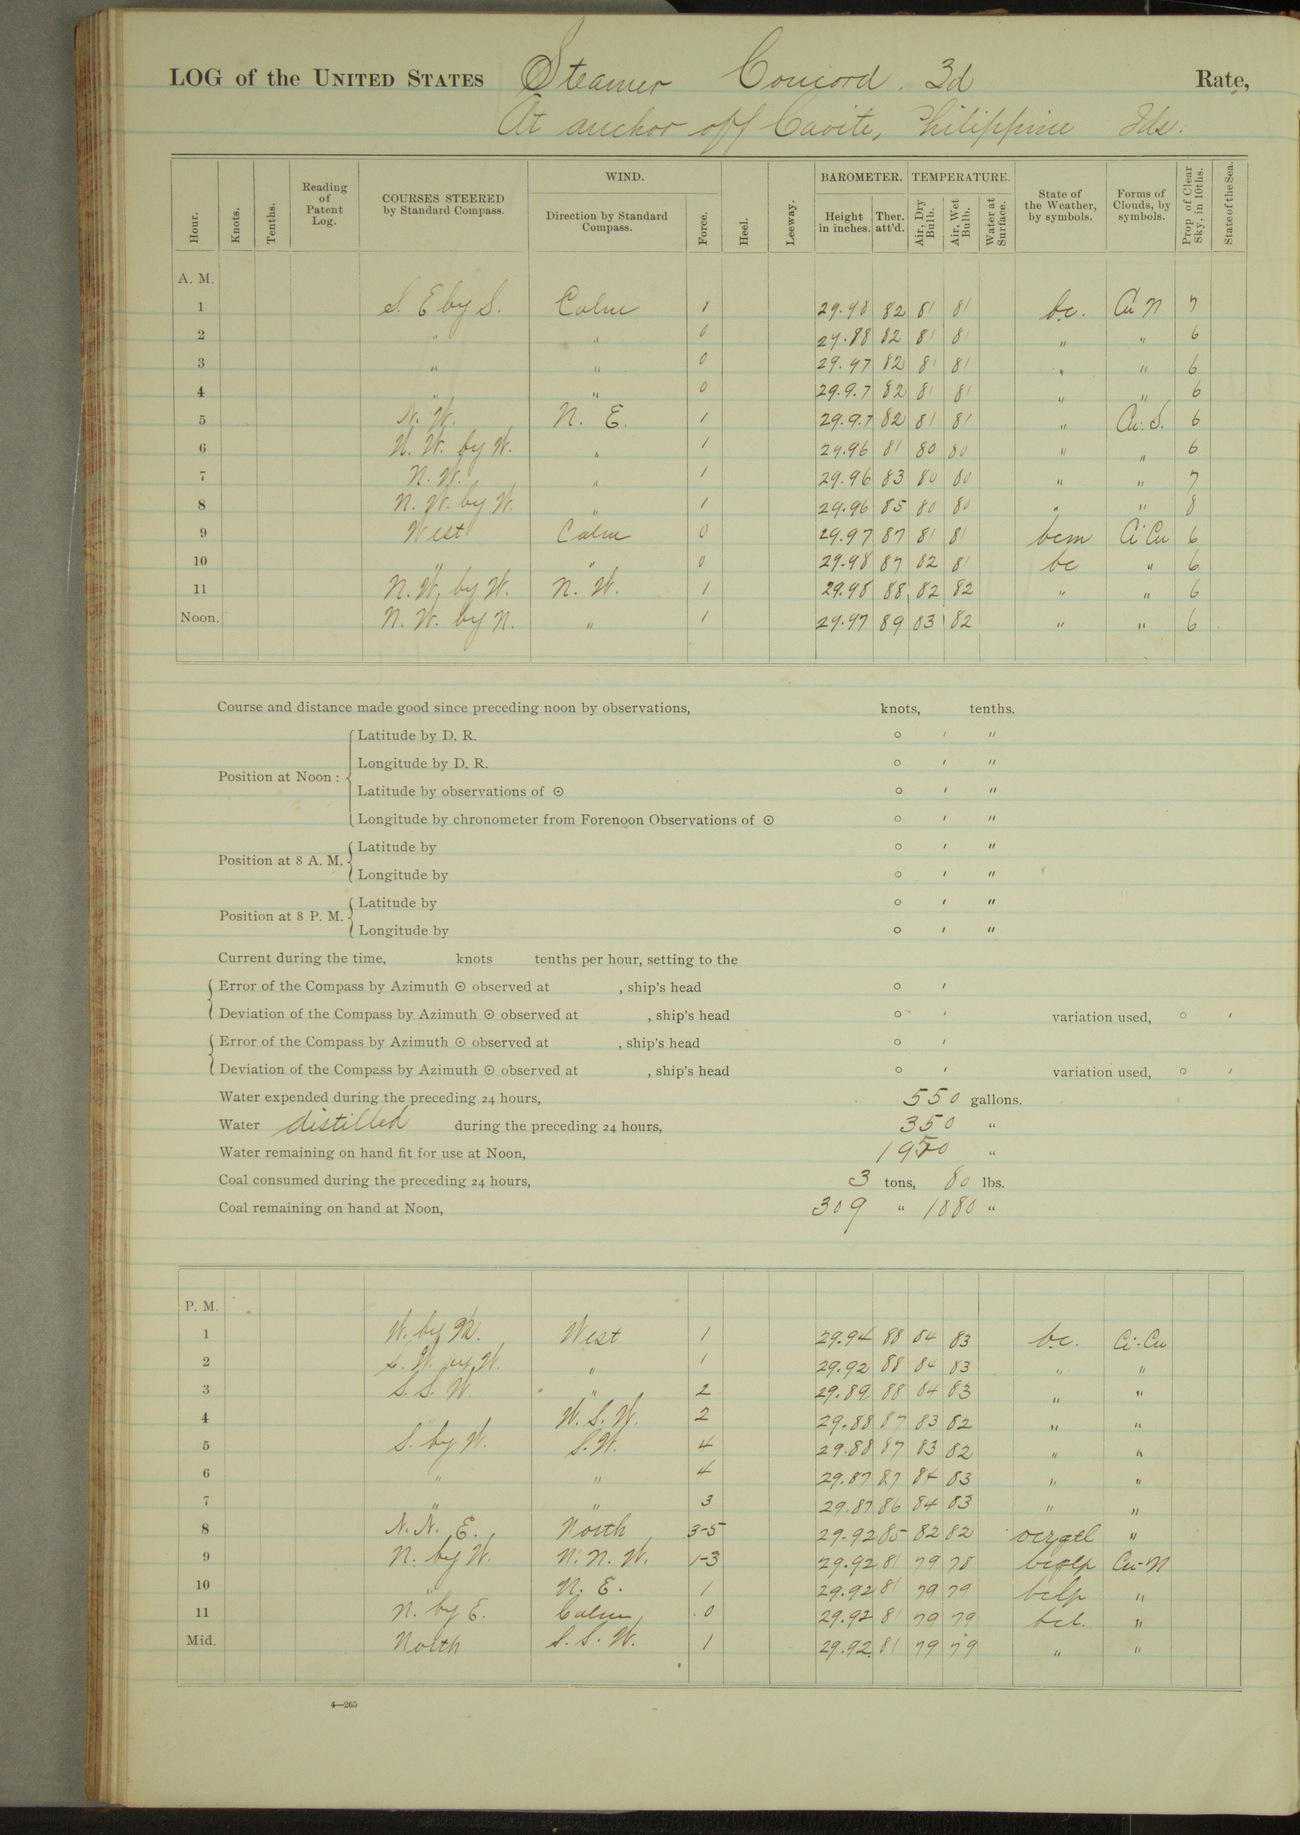 LOG of the UNITED STATES Steamer Concord. 3d Rate,
At anchor off Cavite, Philippine Ids.
Hour. Knots. Tenths. Reading of Patent Log. COURSES STEERED by Standard Compass. WIND. Direction by Standard Compass. Force. Heel. Leeway. BAROMETER. Height in inches. Ther. att'd. TEMPERATURE. Air, Dry Bulb. Air, Wet Bulb. Water at Surface. State of the Weather, by symbols. Forms of Clouds, by symbols. Prop of Clear Sky, in 10ths. State of the Sea.
A. M.
1 S. E by S. Calm 1 29.98 82 81 81 bc. Cu N 7
2 " " 0 29.88 82 81 81 " " 6
3 " " 0 29.97 82 81 81 " " 6
4 " " 0 29.9.7 82 81 81 " " 6
5 N. W. N. E. 1 29.9.7 82 81 81 " Cu. S. 6
6 N. W. by W. " 1 29.96 81 80 80 " " 6
7 N. W. " 1 29.96 83 80 80 " " 7
8 N. W. by W. " 1 29.96 85 80 80 " " 8
9 West Calm 0 29.97 87 81 81 bcm Ci Cu 6
10 " " 0 29.98 87 82 81 bc " 6
11 N. W. by W. N. W. 1 29.98 88 82 82 " " 6
Noon. N. W. by N. " 1 29.97 89 83 82 " " 6
Course and distance made good since preceding noon by observations, knots, tenths.
Position at Noon: Latitude by D. R. ° ′ ″
Longitude by D. R. ° ′ ″
Latitude by observations of ⊙ ° ′ ″
Longitude by chronometer from Forenoon Observations of ⊙ ° ′ ″
Position at 8 A. M. Latitude by ° ′ ″
Longitude by ° ′ ″
Position at 8 P. M. Latitude by ° ′ ″
Longitude by ° ′ ″
Current during the time, knots tenths per hour, setting to the
Error of the Compass by Azimuth ⊙ observed at , ship's head ° ′
Deviation of the Compass by Azimuth ⊙ observed at , ship's head ° ′ variation used, ° ′
Error of the Compass by Azimuth ⊙ observed at , ship's head ° ′
Deviation of the Compass by Azimuth ⊙ observed at , ship's head ° ′ variation used, ° ′
Water expended during the preceding 24 hours, 550 gallons.
Water distilled during the preceding 24 hours, 350 "
Water remaining on hand fit for use at Noon, 1950 "
Coal consumed during the preceding 24 hours, 3 tons, 80 lbs.
Coal remaining on hand at Noon, 309 " 1080 "
P. M.
1 W. by N. West 1 29.94 88 84 83 bc. Ci-Cu
2 S. W. by W. " 1 29.92 88 84 83 " "
3 S. S. W. " 2 29.89 88 84 83 " "
4 W. S. W. 2 29.88 87 83 82 " "
5 S. by W. S. W. 4 29.88 87 83 82 " "
6 " " 4 29.87 87 84 83 " "
7 " " 3 29.87 86 84 83 " "
8 N. N. E. North 3-5 29.92 85 82 82 ocrqtl "
9 N. by W. N. N. W. 1-3 29.92 81 79 78 bcqlp Cu-N
10 " N. E. 1 29.92 81 79 79 bclp "
11 N. by E. Calm 0 29.92 81 79 79 bcl. "
Mid. North S. S. W. 1 29.92 81 79 79 " "
4—265